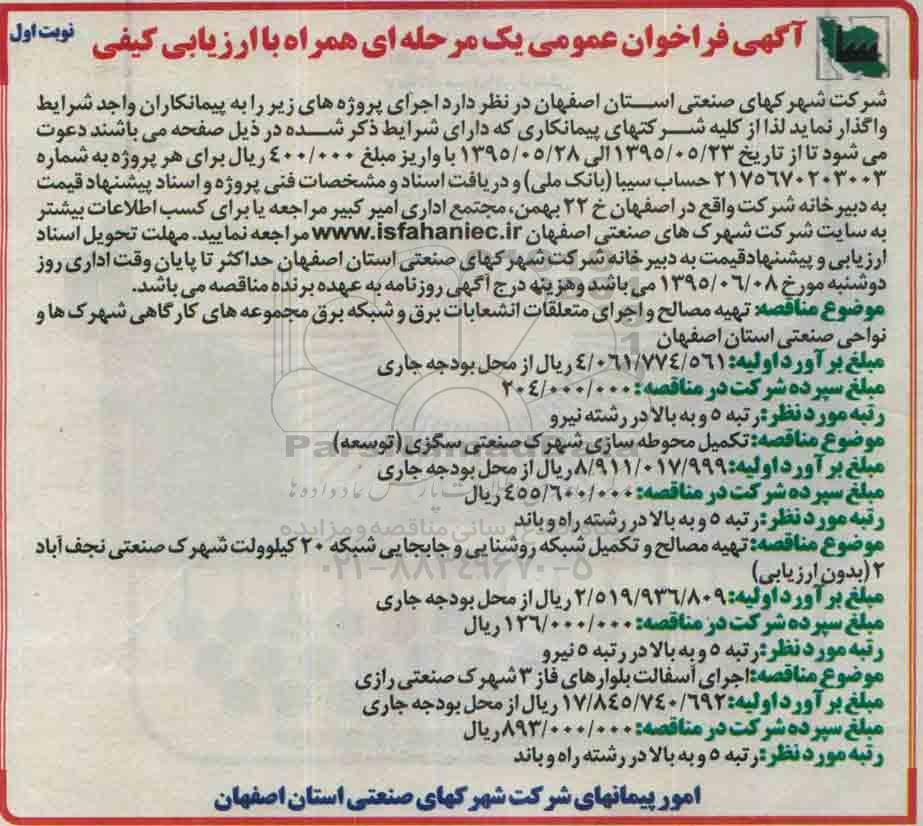 آگهی فراخوان عمومی یک مرحله ای همراه با ارزیابی کیفی
نوبت اول
شرکت شهرکهای صنعتی استان اصفهان در نظر دارد اجرای پروژه های زیر را به پیمانکاران واجد شرایط
واگذار نماید لذا از کلیه شرکتهای پیمانکاری که دارای شرایط ذکر شده در ذیل صفحه می باشند دعوت
می شود تا از تاریخ ۱۳۹۵/۰۵/۲۳ الی ۱۳۹۵/۰۵/۲۸ با واریز مبلغ ۴۰۰/۰۰۰ ریال برای هر پروژه به شماره
۲۱۷۵۶۷۰۲۰۳۰۰۳ حساب سیبا (بانک ملی) و دریافت اسناد و مشخصات فنی پروژه و اسناد پیشنهاد قیمت
به دبیرخانه شرکت واقع در اصفهان خ ۲۲ بهمن، مجتمع اداری امیر کبیر مراجعه یا برای کسب اطلاعات بیشتر
به سایت شرکت شهرک های صنعتی اصفهان www.isfahaniec.ir مراجعه نمایید. مهلت تحویل اسناد
ارزیابی و پیشنهادقیمت به دبیرخانه شرکت شهرکهای صنعتی استان اصفهان حداکثر تا پایان وقت اداری روز
دوشنبه مورخ ۱۳۹۵/۰۶/۰۸ می باشد وهزینه درج آگهی روزنامه به عهده برنده مناقصه می باشد.
موضوع مناقصه: تهیه مصالح و اجرای متعلقات انشعابات برق و شبکه برق مجموعه های کارگاهی شهرک ها و
نواحی صنعتی استان اصفهان
مبلغ برآورد اولیه: ۴/۰۶۱/۷۷۴/۵۶۱ ریال از محل بودجه جاری
مبلغ سپرده شرکت در مناقصه: ۲۰۴/۰۰۰/۰۰۰
رتبه مورد نظر: رتبه ۵ و به بالا در رشته نیرو
موضوع مناقصه: تکمیل محوطه سازی شهرک صنعتی سگزی (توسعه)
مبلغ برآورد اولیه: ۸/۹۱۱/۰۱۷/۹۹۹ ریال از محل بودجه جاری
مبلغ سپرده شرکت در مناقصه: ۴۵۵/۶۰۰/۰۰۰ ریال
رتبه مورد نظر: رتبه ۵ و به بالا در رشته راه و باند
موضوع مناقصه: تهیه مصالح و تکمیل شبکه روشنایی و جابجایی شبکه ۲۰ کیلوولت شهرک صنعتی نجف آباد
۲ (بدون ارزیابی)
مبلغ برآورد اولیه: ۲/۵۱۹/۹۳۶/۸۰۹ ریال از محل بودجه جاری
مبلغ سپرده شرکت در مناقصه: ۱۲۶/۰۰۰/۰۰۰ ریال
رتبه مورد نظر: رتبه ۵ و به بالا در رتبه ۵ نیرو
موضوع مناقصه: اجرای آسفالت بلوارهای فاز ۳ شهرک صنعتی رازی
مبلغ برآورد اولیه: ۱۷/۸۴۵/۷۴۰/۶۹۲ ریال از محل بودجه جاری
مبلغ سپرده شرکت در مناقصه: ۸۹۳/۰۰۰/۰۰۰ ریال
رتبه مورد نظر: رتبه ۵ و به بالا در رشته راه و باند
امور پیمانهای شرکت شهرکهای صنعتی استان اصفهان
۰۲۱-۸۸۳۴۹۶۷۰-۵